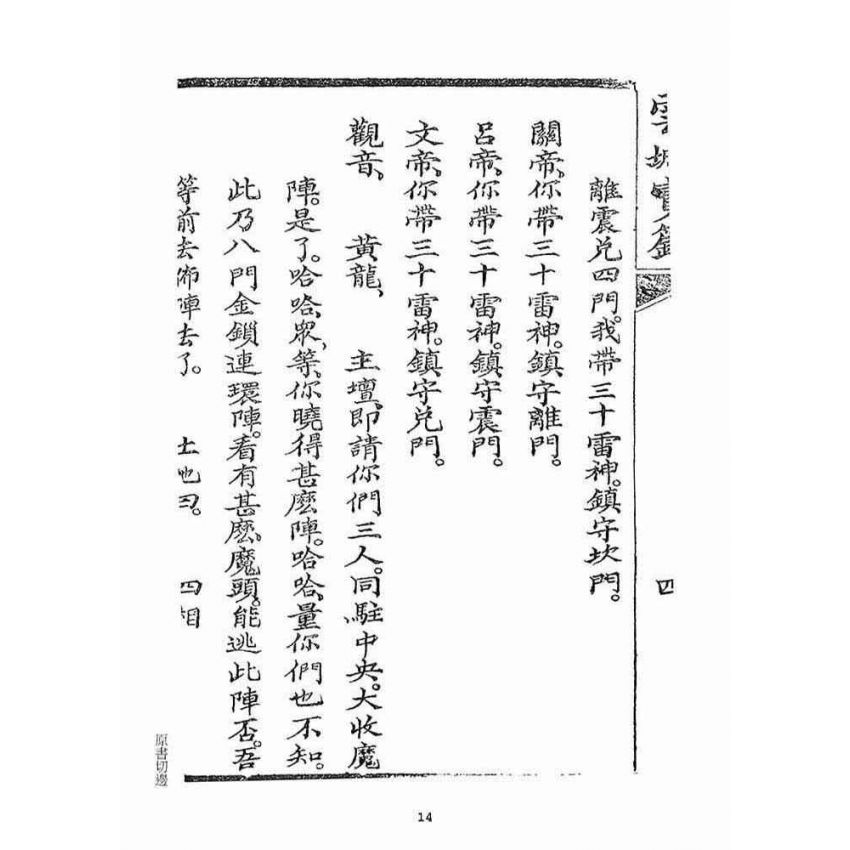 雲城寶籙
四
離震兌四門。我帶三十雷神。鎮守坎門。
關帝、你帶三十雷神。鎮守離門。
呂帝、你帶三十雷神。鎮守震門。
文帝、你帶三十雷神。鎮守兌門。
觀音、 黃龍、 主壇、即請你們三人。同駐中央。大收魔
陣。是了。哈哈、眾等、你曉得甚麼陣。哈哈、量你們也不知。
此乃八門金鎖連環陣。看有甚麼、魔頭。能逃此陣否。吾
等前去佈陣去了。 四相
原書切邊
14